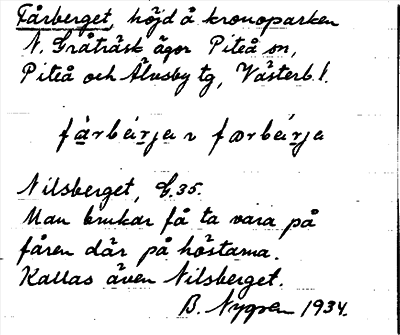 Fårberget, höjd å kronoparken
N. Gråträsk ägor Piteå sn,
Piteå och Älvsby tg, Västerb. l.
fàrbárjạ ɿ farbárja
Nilsberget, C.35.
Man brukar få ta vara på
fåren där på höstarna.
Kallas även Nilsberget.
B. Nygren 1934.